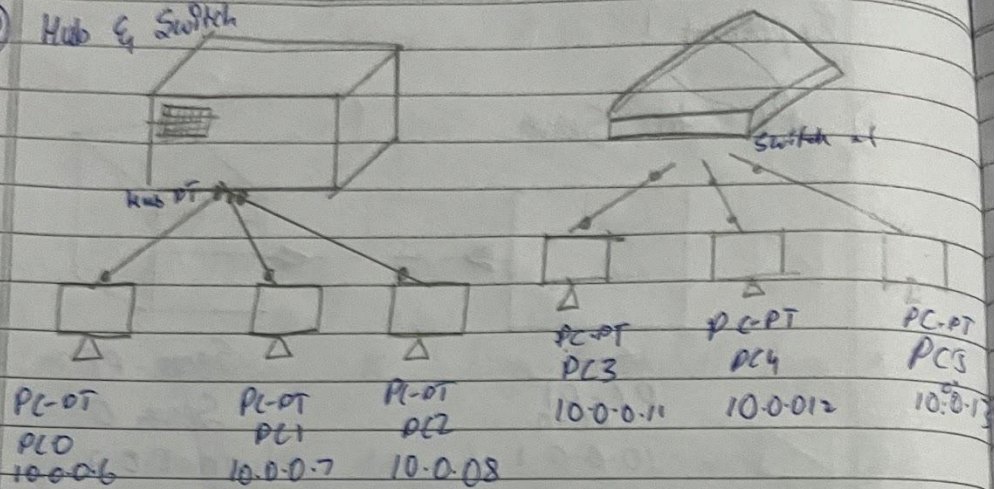 Hub & Switch
Switch
Hub PT
PC-PT
PC0
10.0.0.6
PC-PT
PC1
10.0.0.7
PC-PT
PC2
10.0.08
PC-PT
PC3
10.0.0.11
PC-PT
PC4
10.0.012
PC-PT
PC5